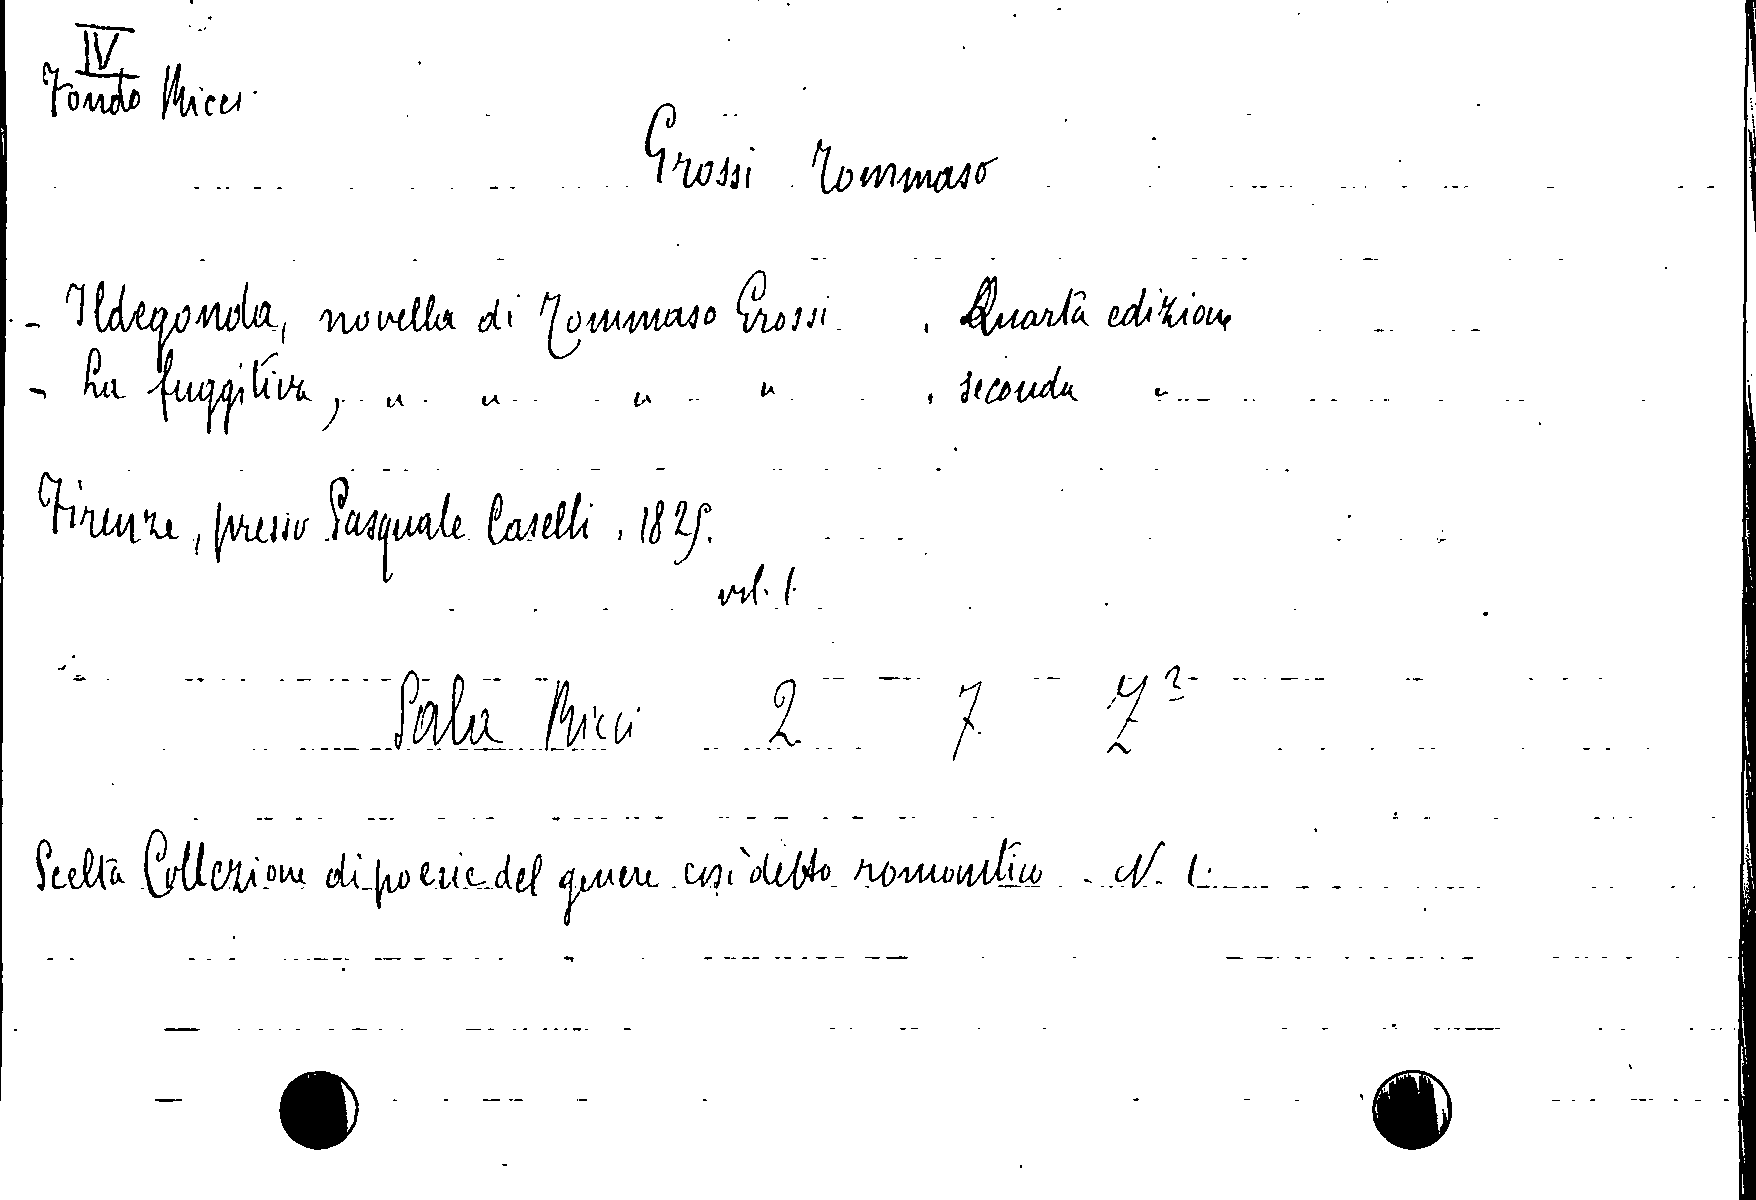 IV
Fondo Ricci
Grossi Tommaso
- Ildegonda, novella di Tommaso Grossi. Quarta edizione
- La fuggitiva, " " " ". seconda "
Firenze, presso Pasquale Caselli. 1825.
vol. 1.
Sala Ricci 2 7
Scelta Collezione di poesie del genere cosìdetto romantico. N. 1.